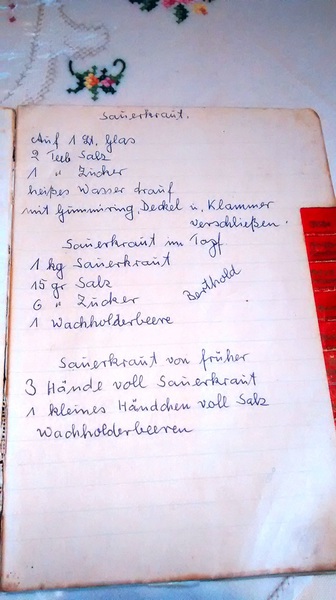 Sauerkraut.
Auf 1 Lt. Glas
2 Teel. Salz
1 " Zucker
heißes Wasser drauf
mit Gummiring, Deckel u. Klammer
verschließen.
Sauerkraut im Topf
1 kg Sauerkraut
15 gr Salz
6 " Zucker
Berthold
1 Wachholderbeere
Sauerkraut von früher
3 Hände voll Sauerkraut
1 kleines Händchen voll Salz
Wachholderbeeren